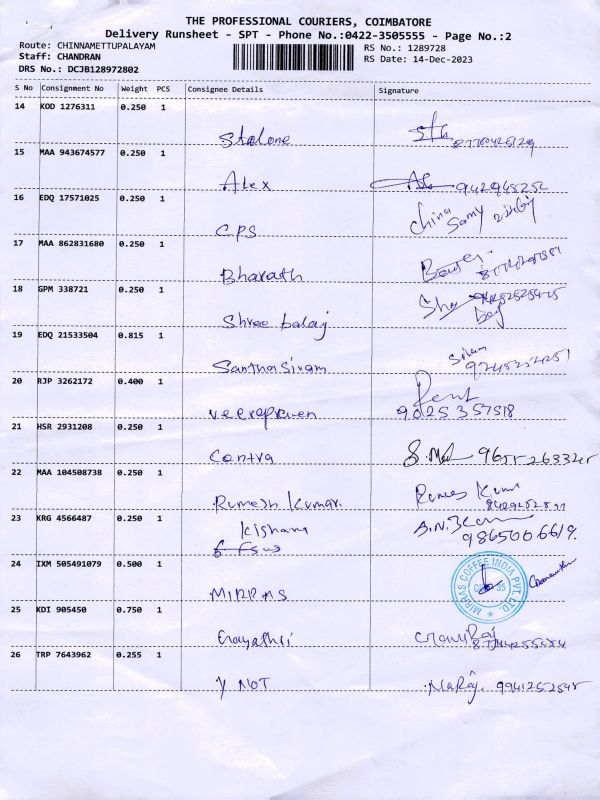 THE PROFESSIONAL COURIERS, COIMBATORE
Delivery Runsheet - SPT - Phone No.:0422-3505555 - Page No.:2
Route: CHINNAMETTUPALAYAM
RS No.: 1289728
Staff: CHANDRAN
RS Date: 14-Dec-2023
DRS No.: DCJB128972802
S No Consignment No Weight PCS Consignee Details Signature
14 KOD 1276311 0.250 1
Stalone
15 MAA 943674577 0.250 1
Alex
16 EDQ 17571025 0.250 1
CPS China Samy
17 MAA 862831680 0.250 1
Bharath
18 GPM 338721 0.250 1
Shree balaj
19 EDQ 21533504 0.815 1
Santhosivam
20 RJP 3262172 0.400 1
veerapraven 9025357518
21 HSR 2931208 0.250 1
Contra
22 MAA 104508738 0.250 1
Rumesh Kumar
23 KRG 4566487 0.250 1
Kishani 9865006619
24 IXM 505491079 0.500 1
MIRRAS MIRRAS COFFEE INDIA PVT. LTD.
25 KDI 905450 0.750 1
26 TRP 7643962 0.255 1
Y NOT